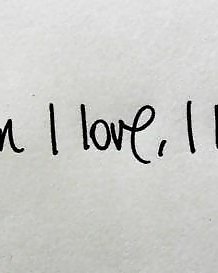 I love, I